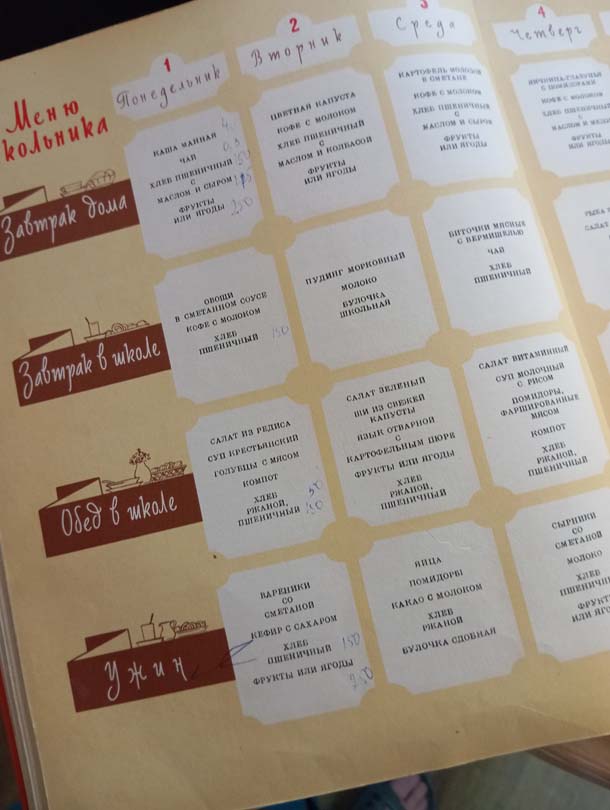 1
Понедельник
2
Вторник
3
Среда
4
Четверг
Меню
кольника
Завтрак дома
КАША МАННАЯ
ЧАЙ
ХЛЕБ ПШЕНИЧНЫЙ
С
МАСЛОМ И СЫРОМ
ФРУКТЫ
ИЛИ ЯГОДЫ 250
ЦВЕТНАЯ КАПУСТА
КОФЕ С МОЛОКОМ
ХЛЕБ ПШЕНИЧНЫЙ
С
МАСЛОМ И КОЛБАСОЙ
ФРУКТЫ
ИЛИ ЯГОДЫ
КАРТОФЕЛЬ МОЛОДОЙ
В СМЕТАНЕ
КОФЕ С МОЛОКОМ
ХЛЕБ ПШЕНИЧНЫЙ
С
МАСЛОМ И СЫРОМ
ФРУКТЫ
ИЛИ ЯГОДЫ
ЯИЧНИЦА-ГЛАЗУНЬЯ
С ПОМИДОРАМИ
КОФЕ С МОЛОКОМ
ХЛЕБ ПШЕНИЧНЫЙ
С
МАСЛОМ И
ФРУКТЫ
ИЛИ ЯГОДЫ
Завтрак в школе
ОВОЩИ
В СМЕТАННОМ СОУСЕ
КОФЕ С МОЛОКОМ
ХЛЕБ
ПШЕНИЧНЫЙ 150
ПУДИНГ МОРКОВНЫЙ
МОЛОКО
БУЛОЧКА
ШКОЛЬНАЯ
БИТОЧКИ МЯСНЫЕ
С ВЕРМИШЕЛЬЮ
ЧАЙ
ХЛЕБ
ПШЕНИЧНЫЙ
РЫБА
САЛАТ
Обед в школе
САЛАТ ИЗ РЕДИСА
СУП КРЕСТЬЯНСКИЙ
ГОЛУБЦЫ С МЯСОМ
КОМПОТ
ХЛЕБ
РЖАНОЙ, 50
ПШЕНИЧНЫЙ
САЛАТ ЗЕЛЕНЫЙ
ЩИ ИЗ СВЕЖЕЙ
КАПУСТЫ
ЯЗЫК ОТВАРНОЙ
С
КАРТОФЕЛЬНЫМ ПЮРЕ
ФРУКТЫ ИЛИ ЯГОДЫ
ХЛЕБ
РЖАНОЙ,
ПШЕНИЧНЫЙ
САЛАТ ВИТАМИННЫЙ
СУП МОЛОЧНЫЙ
С РИСОМ
ПОМИДОРЫ,
ФАРШИРОВАННЫЕ
МЯСОМ
КОМПОТ
ХЛЕБ
РЖАНОЙ,
ПШЕНИЧНЫЙ
Ужин
ВАРЕНИКИ
СО
СМЕТАНОЙ
КЕФИР С САХАРОМ
ХЛЕБ
ПШЕНИЧНЫЙ 150
ФРУКТЫ ИЛИ ЯГОДЫ
250
ЯЙЦА
ПОМИДОРЫ
КАКАО С МОЛОКОМ
ХЛЕБ
РЖАНОЙ
БУЛОЧКА СДОБНАЯ
СЫРНИКИ
СО
СМЕТАНОЙ
МОЛОКО
ХЛЕБ
ПШЕНИЧНЫЙ
ФРУКТЫ
ИЛИ ЯГОДЫ